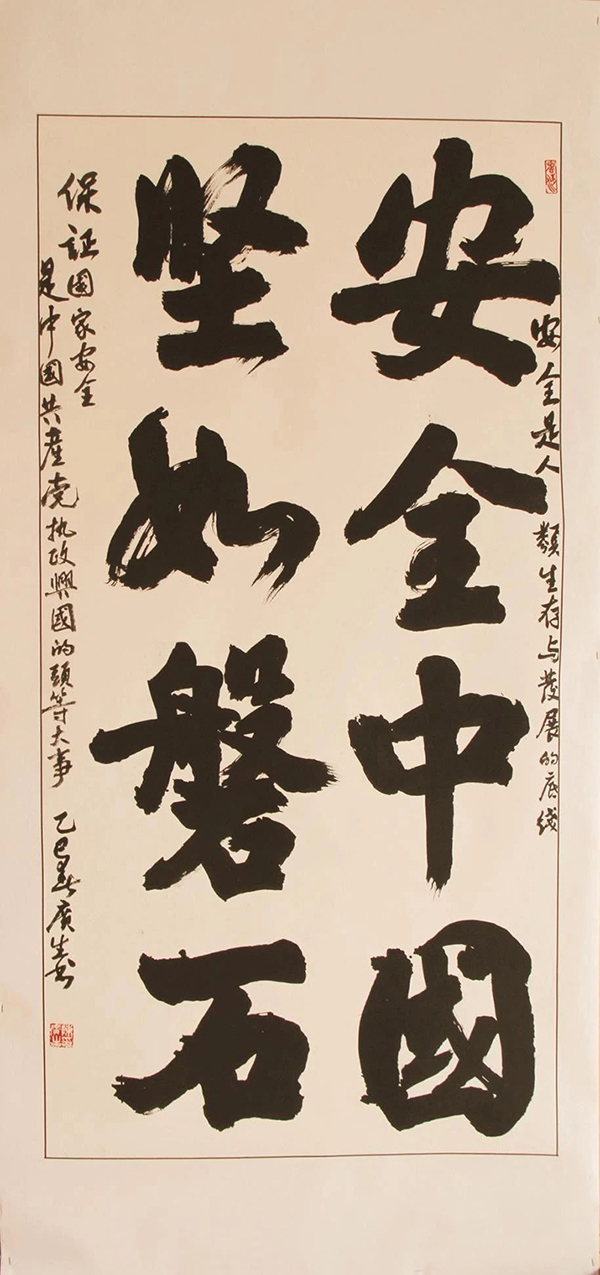 安全是人類生存与發展的底綫
安全中國
坚如磐石
保証國家安全
是中國共產党执政興國的頭等大事 乙巳春廣生书